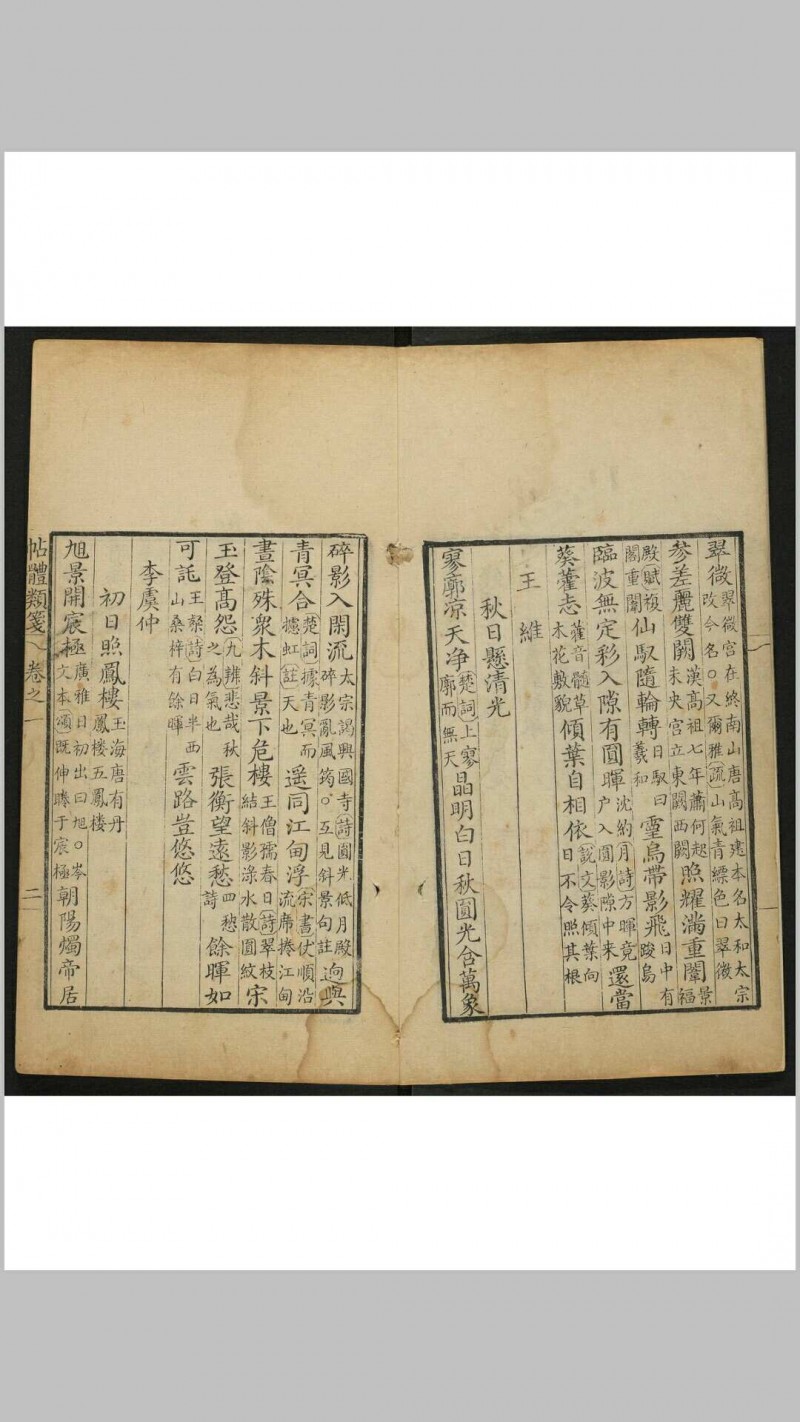 翠微翠微宮在終南山唐高祖建本名太和太宗改今名○又爾雅疏山氣青縹色曰翠微
參差麗雙闕漢高祖七年蕭何起未央宮立東闕西闕照耀滿重闈景福
殿賦複閣重闈仙馭隨輪轉日馭曰羲和靈烏帶影飛日中有踆烏
臨波無定彩入隙有圓暉沈約月詩方暉竟户入圓影隙中来還當
葵藿志藿音髓草木花敷貌傾葉自相依說文葵傾葉向日不令照其根
王維
秋日懸清光
寥廓凉天净楚詞上寥廓而無天晶明白日秋圓光含萬象
碎影入閑流太宗謁興國寺詩圓光低月殿碎影亂風筠○互見斜景句註逈與
青冥合楚詞據青冥而攄虹註天也遥同江甸浮宋書伏順沿流席捲江甸
晝陰殊衆木斜景下危樓王僧孺春日詩翠枝結斜影淥水散圓紋宋
玉登高怨九辨悲哉秋之為氣也張衡望遠愁四愁詩餘暉如
可託王粲詩白日半西山桑梓有餘暉雲路豈悠悠
李虞仲
初日照鳳樓玉海唐有丹鳳樓五鳳樓
旭景開宸極廣雅日初出曰旭○岑文本頌既伸睠于宸極朝陽燭帝居
帖體類箋 卷之一 二